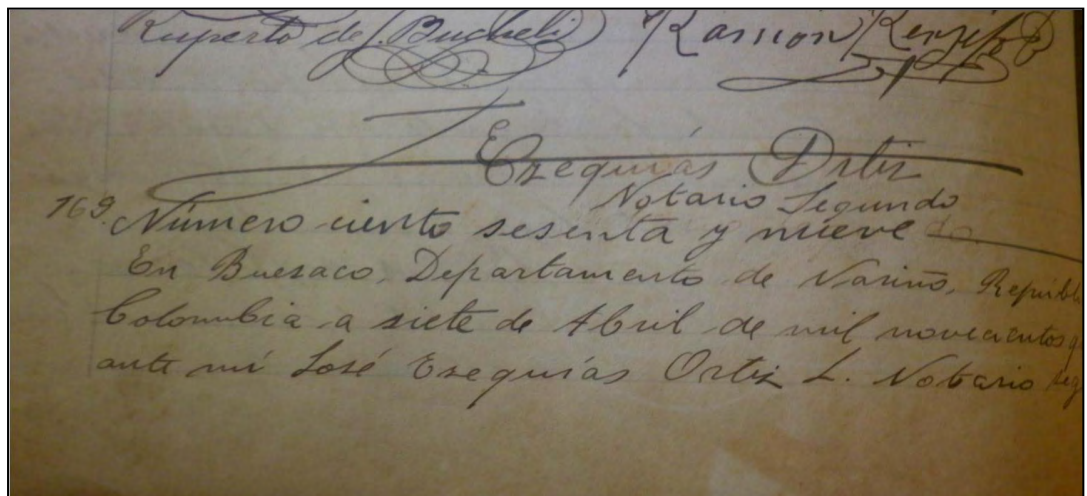 Ruperto de J. Bucheli Ramón
Ezequiás Ortiz
Notario Segundo
169. Número ciento sesenta y nueve
En Buesaco, Departamento de Nariño, Repúbl
Colombia a siete de Abril de mil novecientos q
ante mi José Ezequías Ortiz L. Notario Seg